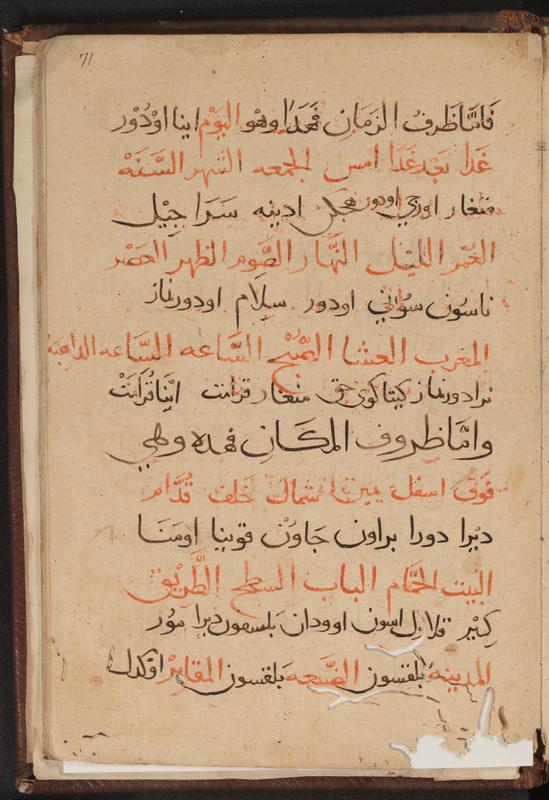 71
فاما ظرف الزمان فهذا وهو اليوم اينا اودور
غدا بعد غدا امس الجمعه الشهر السنه
منغار اوزجي اودور ادينه سرا جيل
العمر الليل النهار الصوم الظهر العصر
ناسون سواني اودور سلام اودور نماز
المغرب العشا الصبح الساعه الساعه الذاهبة
نماز منغار
واما ظروف المكان فهذه وهي
فوق اسفل يمين شمال خلف قدام
ديرا دورا براون جاون قوينا اومنا
البيت الحمام الباب السطح الطريق
كير اسون اوودان ديرا مور
المدينه بلقسون الضيعه بلقسون المقابر